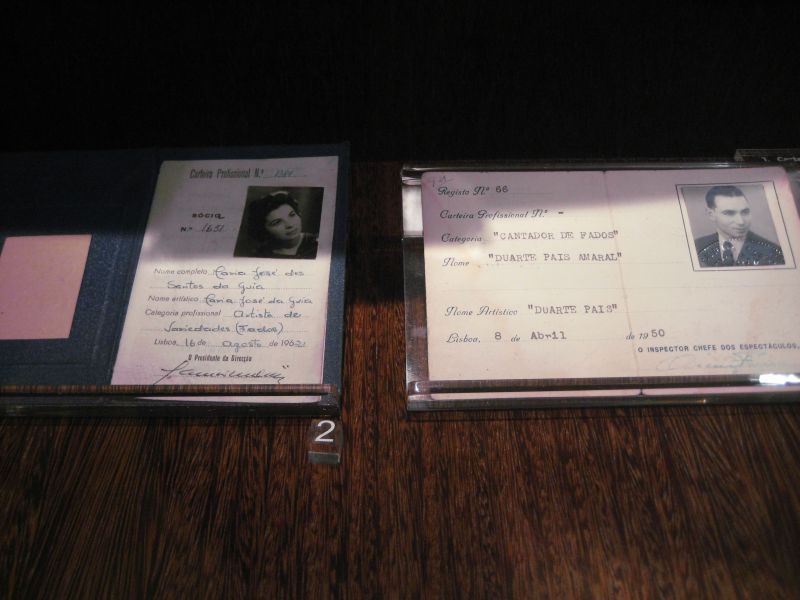 Carteira Profissional N.º
SÓCIA
N.º 1651
Nome completo Maria José dos
Santos da Guia
Nome artístico Maria José da Guia
Categoria profissional Artista de
Variedades (Fados)
Lisboa, 16 de Agosto de 1962
O Presidente da Direcção
2
Registo N.º 66
Carteira Profissional N.º -
Categoria "CANTADOR DE FADOS"
Nome "DUARTE PAIS AMARAL"
Nome Artístico "DUARTE PAIS"
Lisboa, 8 de Abril de 1950
O INSPECTOR CHEFE DOS ESPECTÁCULOS,